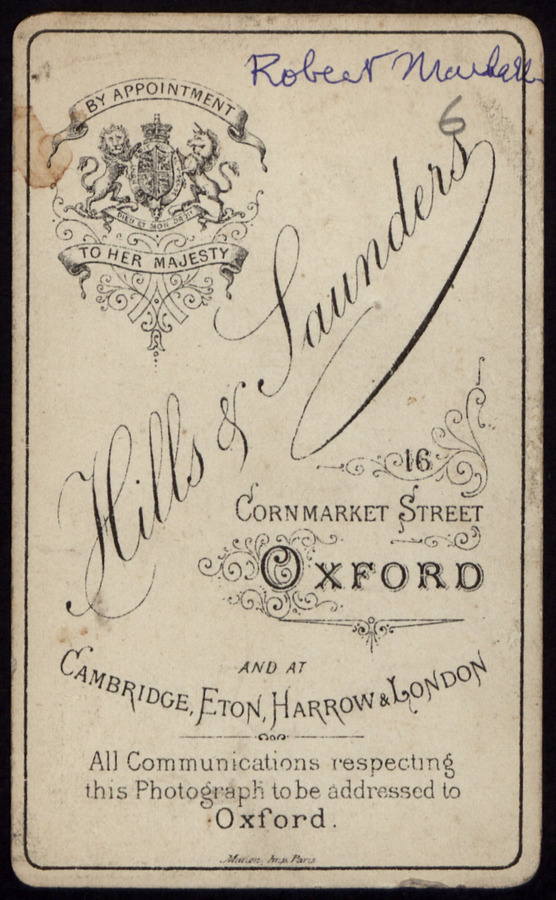 Robert Marshall
6
BY APPOINTMENT
DIEU ET MON DROIT
TO HER MAJESTY
Hills & Saunders
16
CORNMARKET STREET
OXFORD
AND AT
CAMBRIDGE, ETON, HARROW & LONDON
All Communications respecting
this Photograph to be addressed to
Oxford.
Marion, Imp. Paris